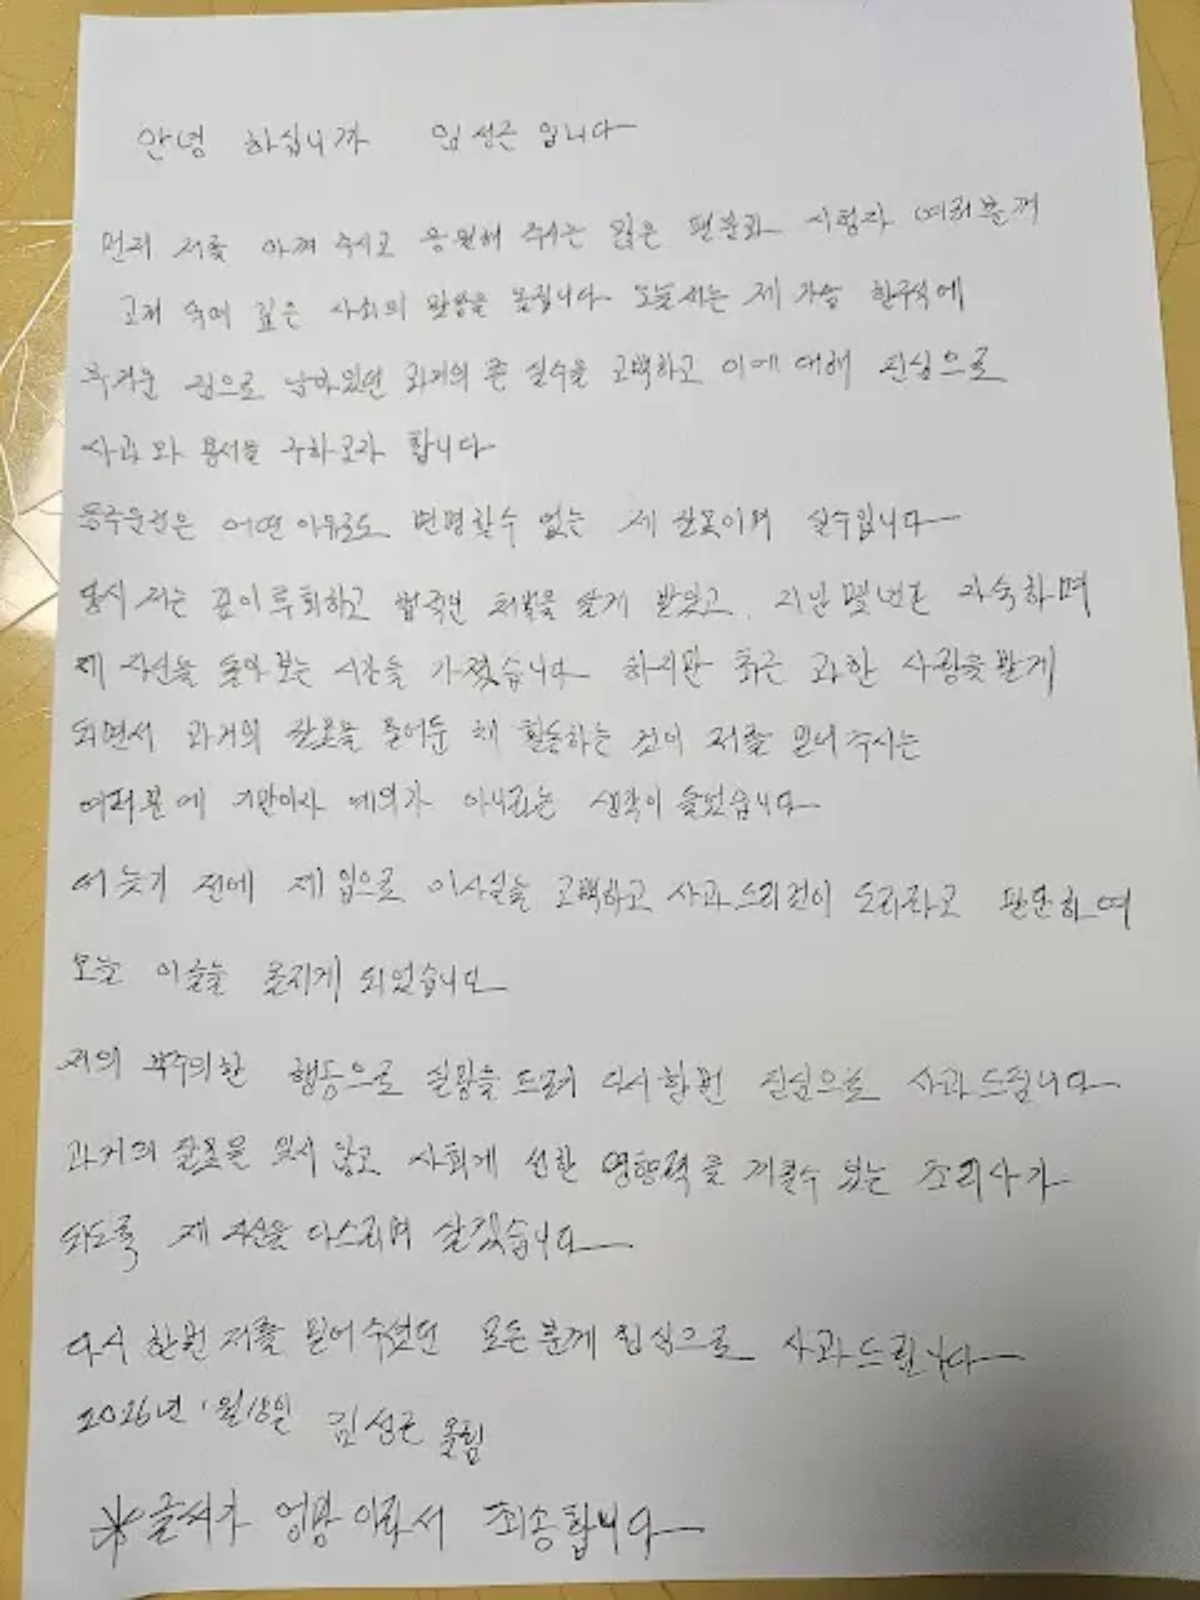 안녕 하십니까 임성근 입니다
먼저 저를 아껴 주시고 응원해 주시는 많은 팬분과 시청자 여러분께
고개 숙여 깊은 사죄의 말씀을 올립니다 오늘 저는 제 가슴 한구석에
무거운 짐으로 남아있던 과거의 큰 실수을 고백하고 이에 대해 진심으로
사과와 용서를 구하고자 합니다
음주운전은 어떤 이유로도 변명할수 없는 제 잘못이며 실수입니다
당시 저는 깊이 후회하고 법적인 처벌을 달게 받았고, 지난 몇년은 자숙하며
제 자신을 돌아 보는 시간을 가졌습니다 하지만 최근 과한 사랑을 받게
되면서 과거의 잘못을 묻어둔 채 활동하는 것이 저를 믿어 주시는
여러분에 기만이자 예의가 아니라는 생각이 들었습니다
더 늦기 전에 제 입으로 이사실을 고백하고 사과드리것이 도리라고 판단하여
오늘 이글을 올리게 되었습니다
저의 부주의한 행동으로 실망을 드려 다시한번 진심으로 사과드립니다
과거의 잘못을 잊지 않고 사회에 선한 영향력을 끼칠수 있는 조리사가
되도록 제 자신을 다스리며 살겠습니다
다시 한번 저를 믿어주셨던 모든분께 진심으로 사과드립니다
2026년 1월18일 임성근 올림
※글씨가 엉망이라서 죄송합니다